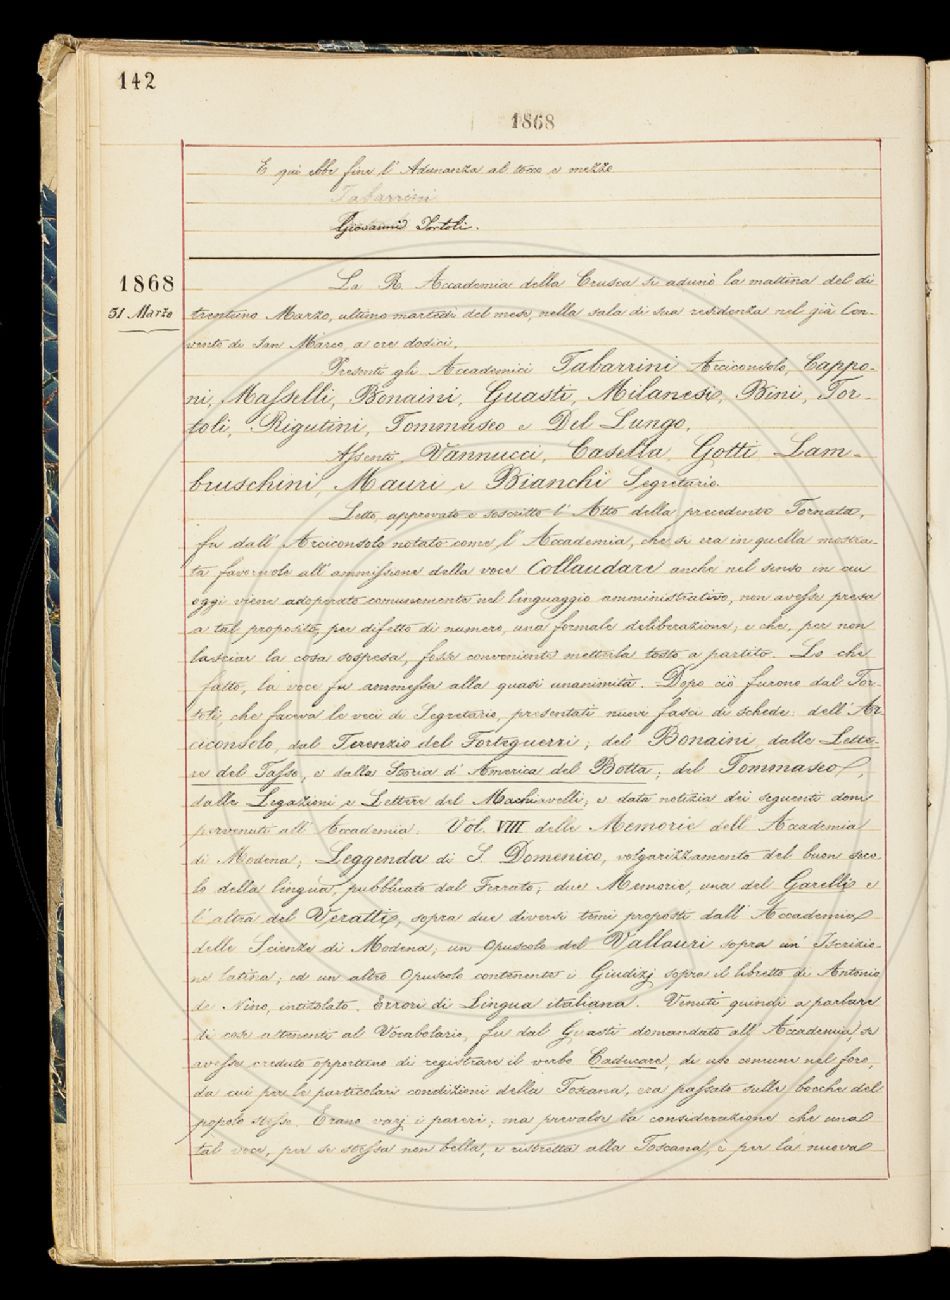 142
1868
E quì ebbe fine l'Adunanza al tocco e mezzo
Tabarrini
Giovanni Tortoli.
1868
31 Marzo
La R. Accademia della Crusca si adunò la mattina del dì
trentuno Marzo, ultimo martedì del mese, nella sala di sua residenza nel già Con-
vento di San Marco, a ore dodici.
Presenti gli Accademici Tabarrini Arciconsolo, Cappo-
ni, Masselli, Bonaini, Guasti, Milanesi, Bini, Tor-
toli, Rigutini, Tommaseo e Del Lungo.
Assenti, Vannucci, Casella, Gotti Lam-
bruschini, Mauri, e Bianchi Segretario.
Letto, approvato e soscritto l'Atto della precedente Tornata,
fu dall'Arciconsolo notato come l'Accademia, che si era in quella mostra-
ta favorevole all'ammissione della voce Collaudare anche nel senso in cui
oggi viene adoperato comunemente nel linguaggio amministrativo, non avesse presa
a tal proposito, per difetto di numero, una formale deliberazione; e che, per non
lasciar la cosa sospesa, fosse conveniente metterla tosto a partito. Lo che
fatto, la voce fu ammessa alla quasi unanimità. Dopo ciò furono dal Tor-
toli che faceva le veci di Segretario, presentati nuovi fasci di schede: dell'Ar
ciconsolo, dal Terenzio del Forteguerri; del Bonaini, dalle Lette-
re del Tasso, e dalla Storia d'America del Botta; del Tommaseo,
dalle Legazioni e Lettere del Machiavelli; e data notizia dei seguenti doni
pervenuti all'Accademia: Vol. VIII delle Memorie dell'Accademia
di Modena; Leggenda di S. Domenico, volgarizzamento del buon seco-
lo della lingua, pubblicato dal Ferrato; due Memorie, una del Garelli e
l'altra del Veratti, sopra due diversi temi proposti dall'Accademia
delle Scienze di Modena; un Opuscolo del Vallauri sopra un'Iscrizio-
ne latina; ed un altro Opuscolo contenente i Giudizj sopra il libretto di Antonio
de Nino, intitolato Errori di Lingua italiana. Venuti quindi a parlare
di cose attenenti al Vocabolario, fu dal Guasti domandato all'Accademia, se
avesse creduto opportuno di registrare il verbo Caducare, di uso comune nel foro,
da cui per le particolari condizioni della Toscana, era passato sulle bocche del
popolo stesso. Erano varj i pareri; ma prevalse la considerazione che una
tal voce, per se stessa non bella, e ristretta alla Toscana, è per la nuova